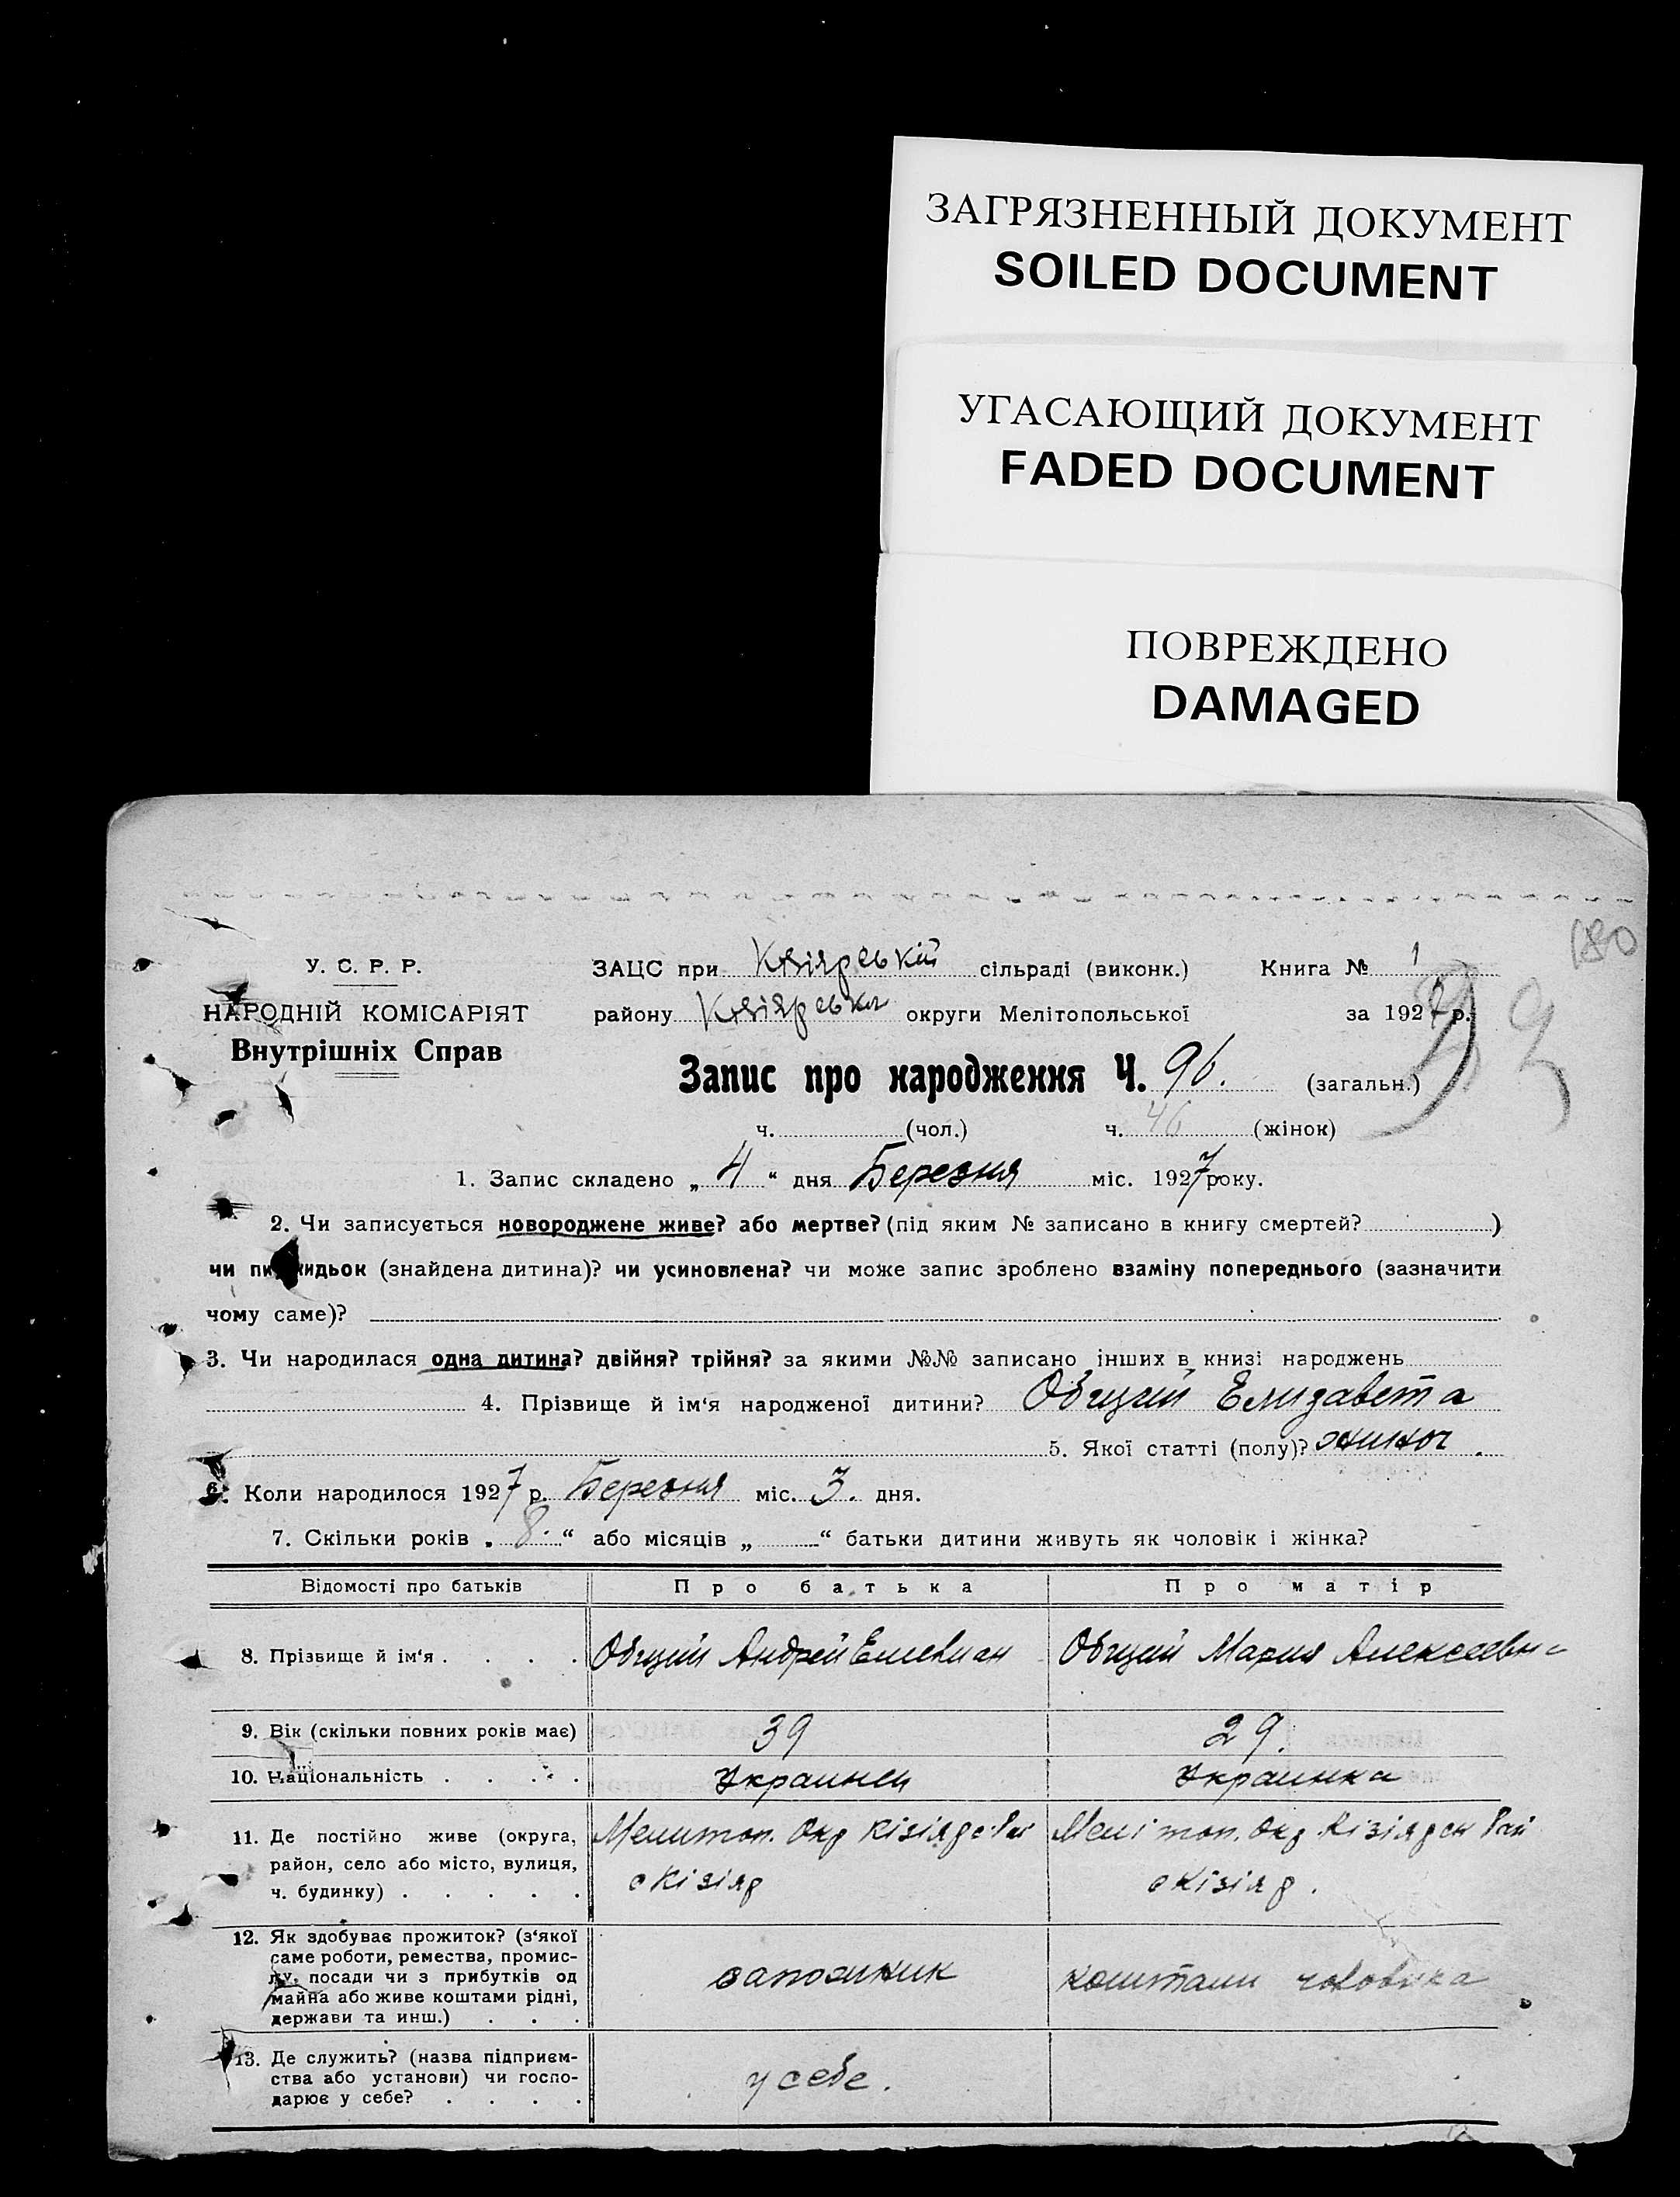 ЗАГРЯЗНЕННЫЙ ДОКУМЕНТ
SOILED DOCUMENT
УГАСАЮЩИЙ ДОКУМЕНТ
FADED DOCUMENT
ПОВРЕЖДЕНО
DAMAGED
180
У. С. Р. Р.
НАРОДНІЙ КОМІСАРІЯТ
Внутрішніх Справ
ЗАЦС при Кзіярській сільраді (виконк.) Книга № 1
району Кзіярська округи Мелітопольської за 1927 р.
Запис про народження Ч. 96. (загальн.)
ч. (чол.) ч. 46 (жінок)
1. Запис складено „ 4 “ дня Березня міс. 1927 року.
2. Чи записується новороджене живе? або мертве? (під яким № записано в книгу смертей? )
чи підкидьок (знайдена дитина)? чи усиновлена? чи може запис зроблено взаміну попереднього (зазначити
чому саме)?
3. Чи народилася одна дитина? двійня? трійня? за якими №№ записано інших в книзі народжень
4. Прізвище й ім‘я народженої дитини? Общий Елизавета
5. Якої статті (полу)? жиноч.
6. Коли народилося 1927 р. Березня міс. 3. дня.
7. Скільки років „ 8. “ або місяців „ “ батьки дитини живуть як чоловік і жінка?
Відомості про батьків Про батька Про матір
8. Прізвище й ім‘я . . . . Общий Андрей Емельян Общий Мария Алексеевн
9. Вік (скільки повних років має) 39 29.
10. Національність . . . . Украинец Украинка
11. Де постійно живе (округа,
район, село або місто, вулиця,
ч. будинку) . . . . .
Мелитоп. Окр Кізіяр Рай
с Кізіяр
Мелітоп. Окр Кізіярск Рай
с Кізіяр.
12. Як здобуває прожиток? (з‘якої
саме роботи, ремества, промис-
лу, посади чи з прибутків од
майна або живе коштами рідні,
держави та инш.) . . .
сапожник
коштами чоловика
13. Де служить? (назва підприєм-
ства або установи) чи госпо-
дарює у себе? . . . .
у себе.